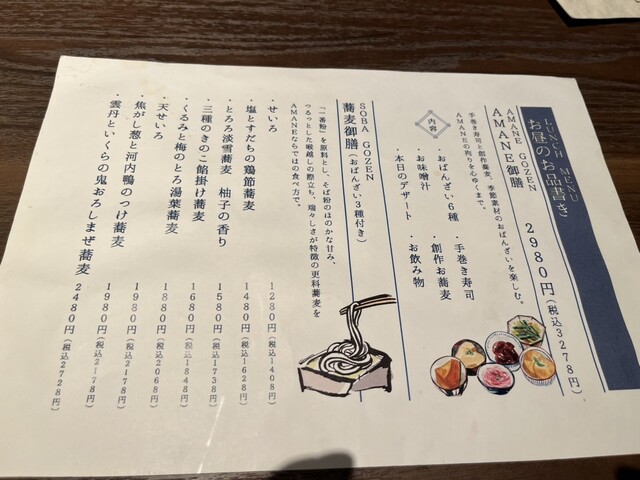 LUNCH MENU
お昼のお品書き
AMANE GOZEN
AMANE御膳 2980円(税込3278円)
手巻き寿司と創作蕎麦、季節素材のおばんざいを楽しむ。
AMANEの拘りを心ゆくまで。
内容
・おばんざい6種 ・手巻き寿司
・お味噌汁 ・創作お蕎麦
・本日のデザート ・お飲み物
SOBA GOZEN
蕎麦御膳(おばんざい3種付き)
「一番粉」を原料とし、そば粉のほのかな甘み、
つるっとした喉越しの際立ち、瑞々しさが特徴の更科蕎麦を
AMANEならではの食べ方で。
・せいろ 1280円(税込1408円)
・塩とすだちの鶏節蕎麦 1480円(税込1628円)
・とろろ淡雪蕎麦 柚子の香り 1580円(税込1738円)
・三種のきのこ餡掛け蕎麦 1680円(税込1848円)
・くるみと梅のとろ湯葉蕎麦 1880円(税込2068円)
・天せいろ 1980円(税込2178円)
・焦がし葱と河内鴨のつけ蕎麦 1980円(税込2178円)
・雲丹といくらの鬼おろしまぜ蕎麦 2480円(税込2728円)